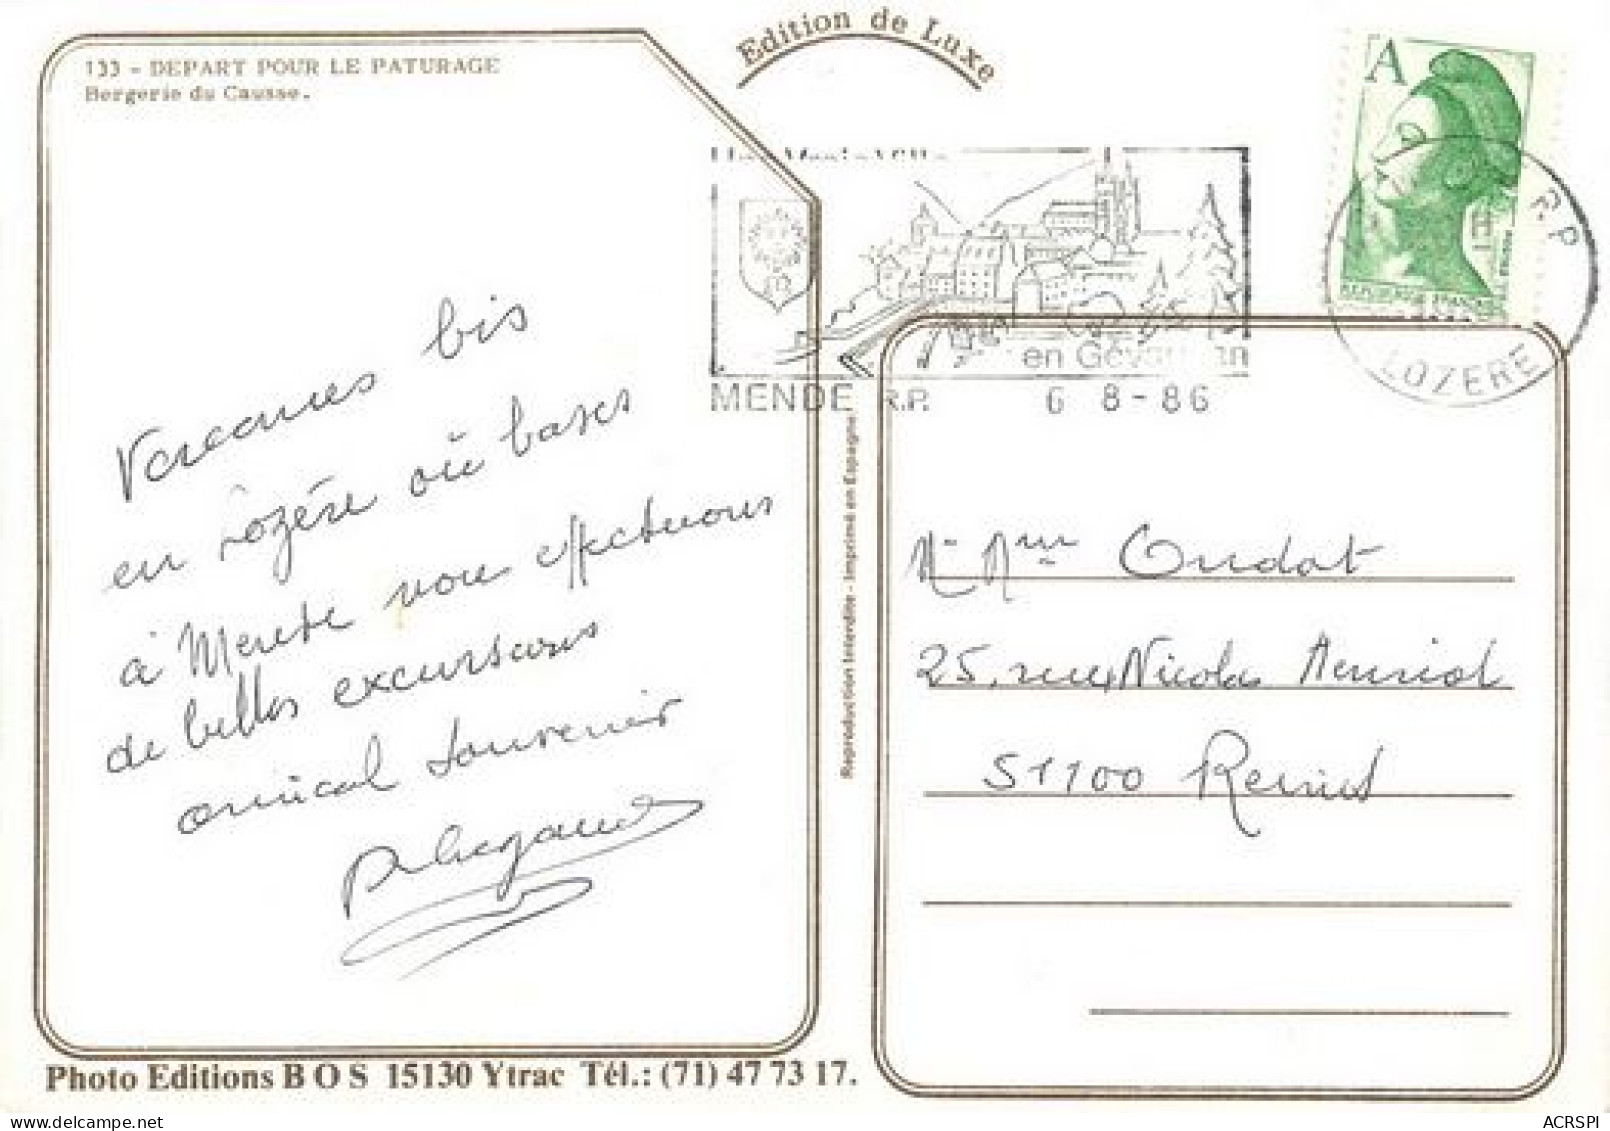 Edition de Luxe
133 - DEPART POUR LE PATURAGE
Bergerie du Causse.
A
REPUBLIQUE FRANCAISE
R.P.
LOZERE
en Gévaudan
MENDE R.P. 6 8-86
Vacances bis
en Lozère où bases
à Mende nous effectuons
de belles excursions
amical souvenir
Reproduction Interdite - Imprimé en Espagne
M. Mme Oudot
25, rue Nicolas
51100 Reims
Photo Editions BOS 15130 Ytrac Tél.: (71) 47 73 17.
ACRSPI